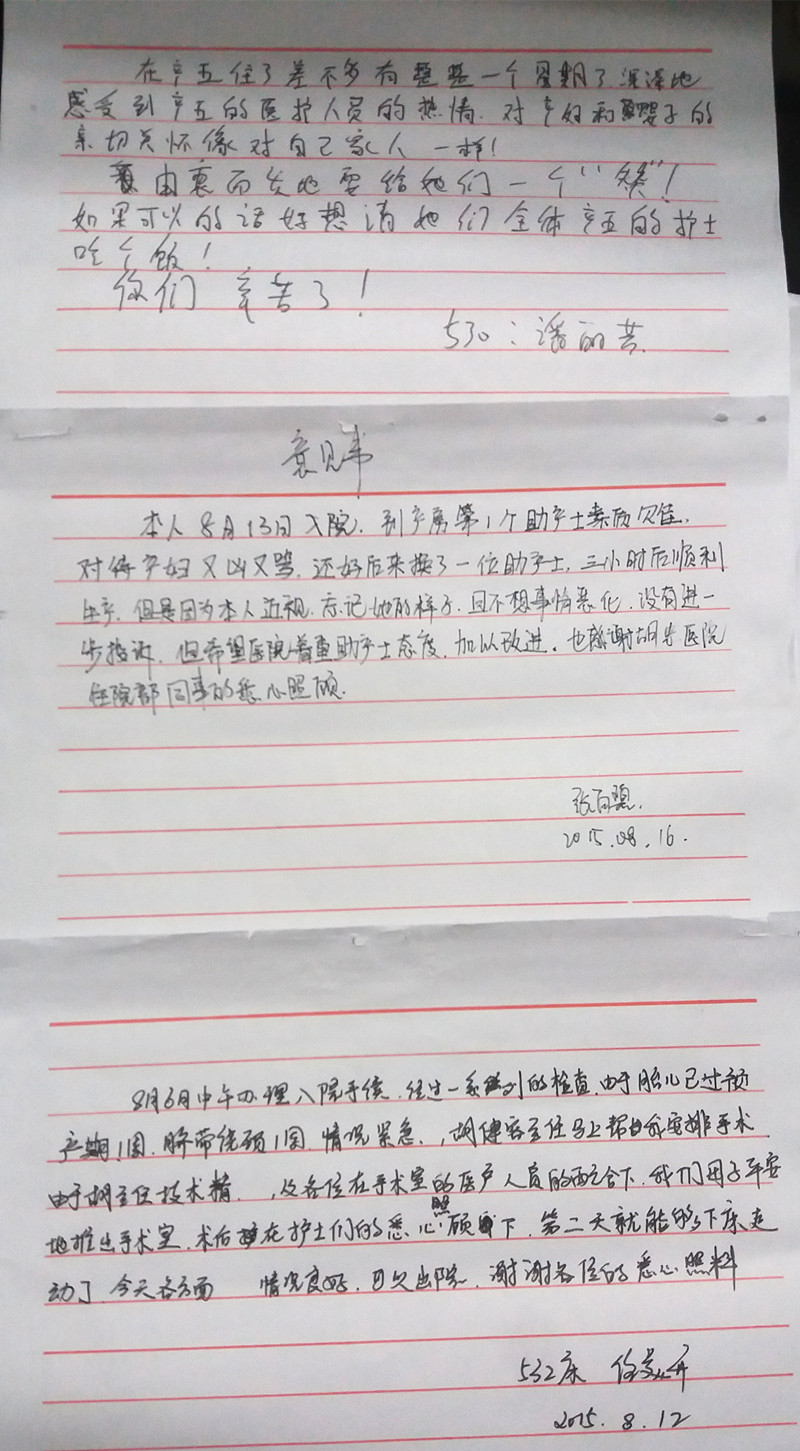 在产五住了差不多有整整一个星期了深深地
感受到产五的医护人员的热情.对产妇和婴子的
亲切关怀像对自己家人一样!
由衷而发地要给她们一个"赞"!
如果可以的话好想请她们全体产五的护士
吃个饭!
你们辛苦了!
530:潘丽芸.
意见书
本人8月13日入院.到产房第1个助产士素质欠佳,
对待产妇又凶又骂.还好后来换了一位助产士,三小时后顺利
生产.但是因为本人近视.忘记她的样子.且不想事情恶化,没有进一
步投诉.但希望医院着重助产士态度,加以改进.也感谢胡步医院
住院部同事的悉心照顾.
2015.08.16.
8月6日中午办理入院手续.经过一系列的检查.由于胎儿已过预
产期1周.脐带绕颈1周.情况紧急.,胡健客主任马上帮我安排手术.
由于胡主任技术精,及各位在手术室的医护人员的配合下.我们母子平安
地推出手术室.术后在护士们的悉心照顾下.第二天就能够下床走
动了.今天各方面 情况良好.出院.谢谢各位的悉心照料
532床
2015.8.12